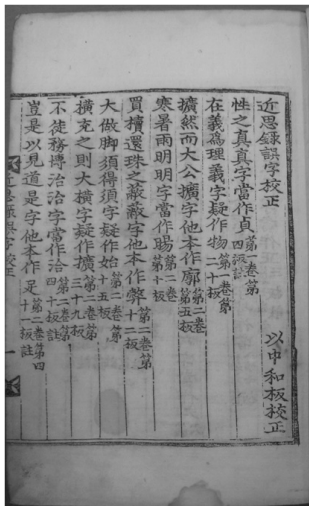 近思錄誤字校正
以中和板校正
性之真真字當作貞 第一卷第四板註
在義爲理義字疑作物 第一卷第二十板
擴然而大公擴字他本作廓 第二卷第五板
寒暑雨明明字當作暘 第二卷第十板
買櫝還珠之蔽蔽字他本作弊 第二卷第十二板
大做脚須得須字疑作始 第二卷第十五板
橫充之則大橫字疑作擴 第二卷第三十九板
不徒務博洽洽字當作洽 第二卷第四十板註
豈是以見道是字他本作足 第二卷第四十二板註
近思錄誤字校正
一